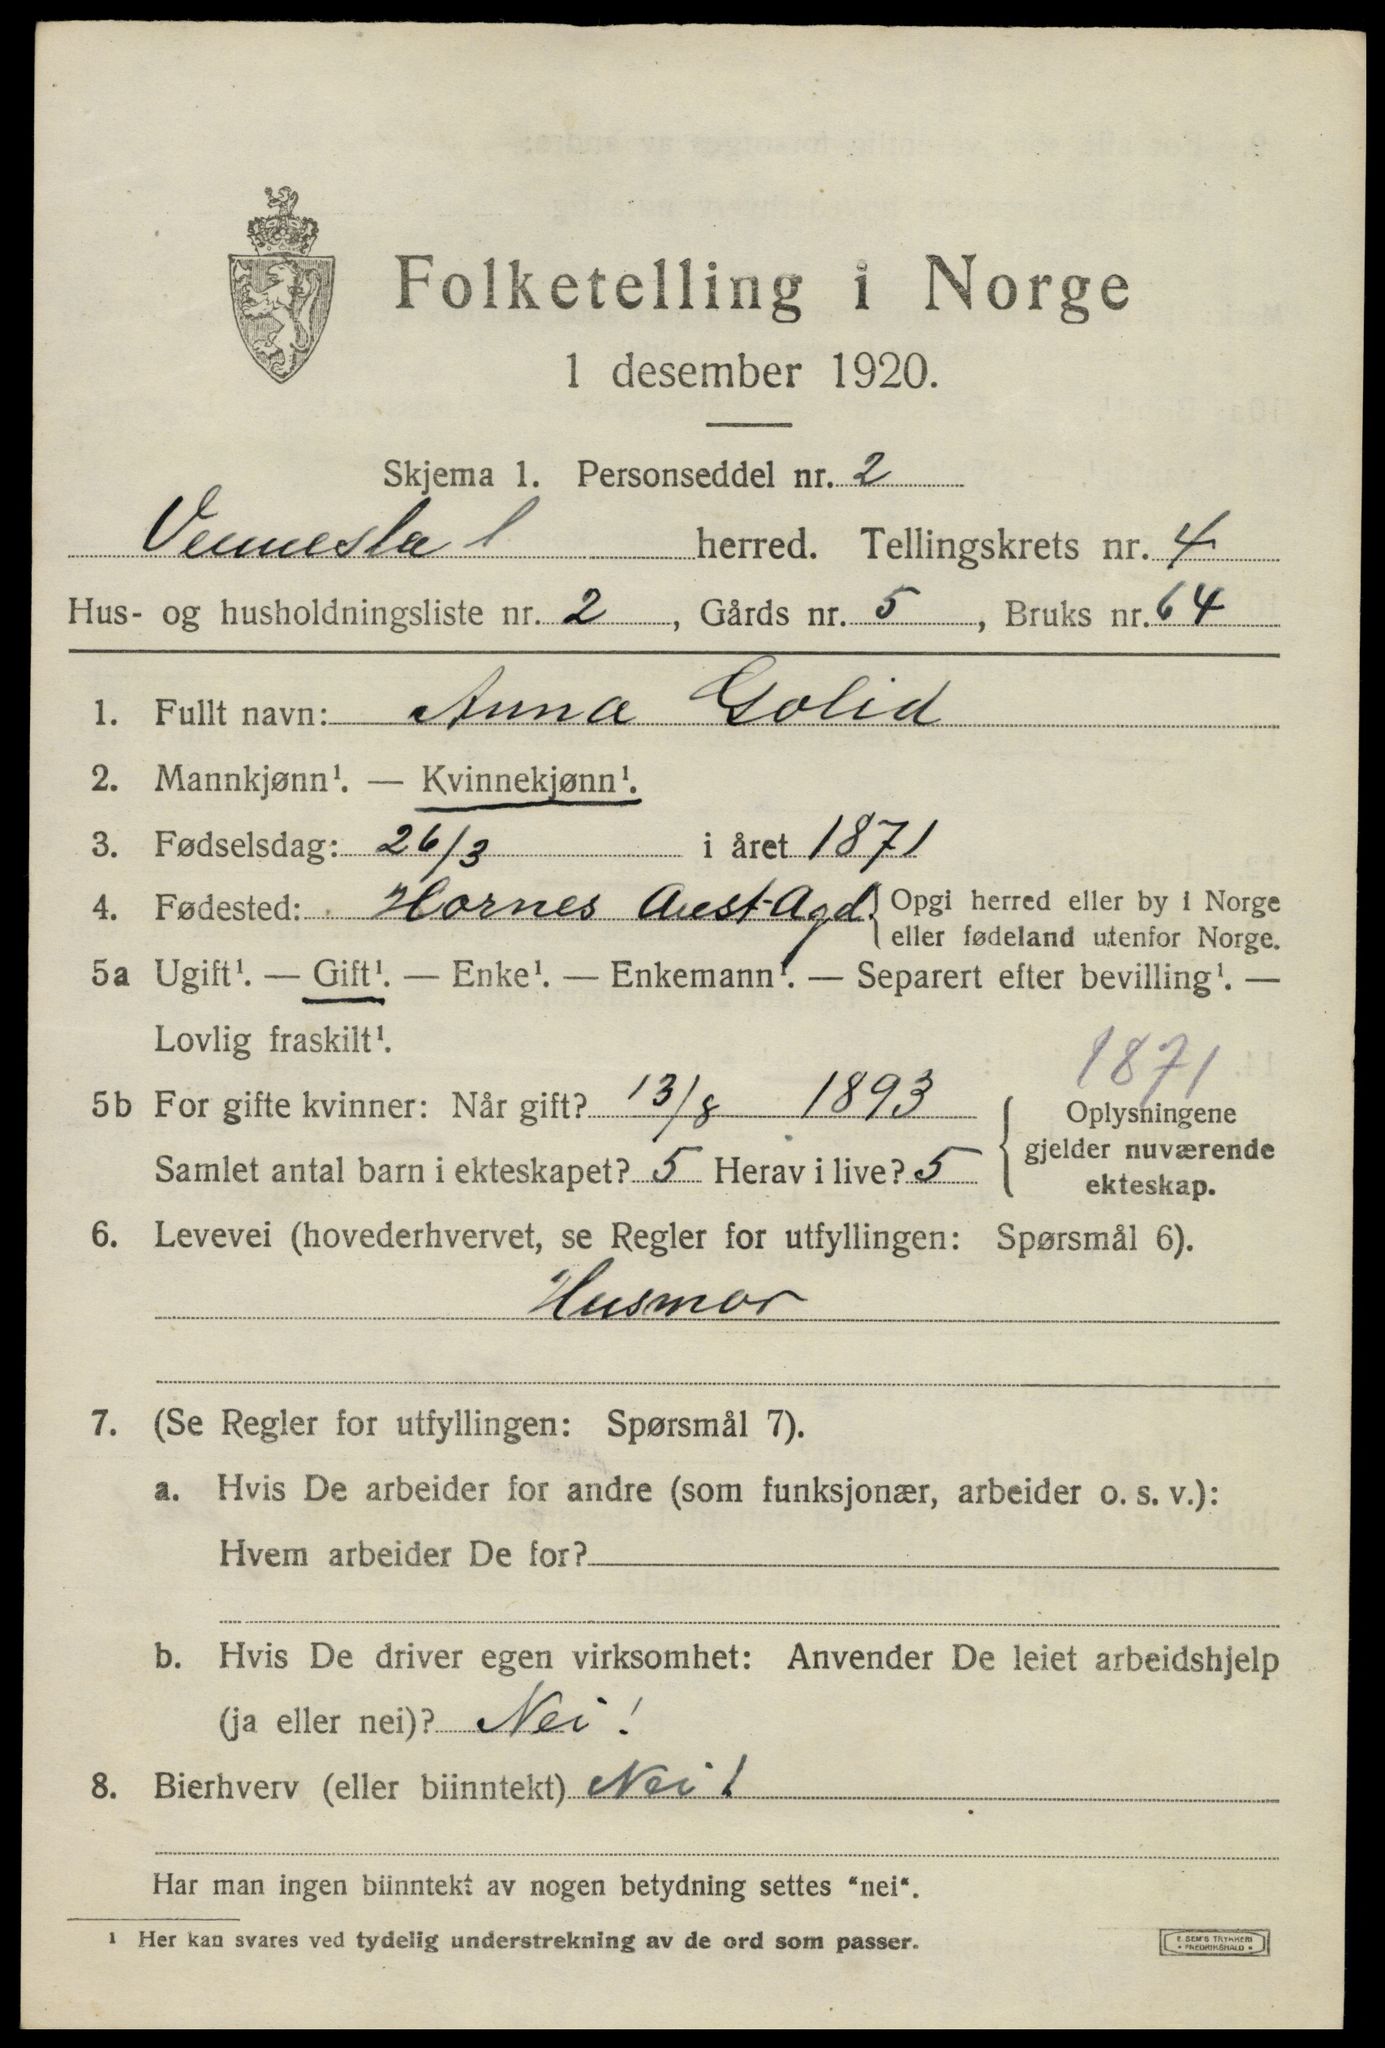 Folketelling i Norge
1 desember 1920.
Skjema 1. Personseddel nr. 2
Vennesla herred. Tellingskrets nr. 4
Hus- og husholdningsliste nr. 2, Gårds nr. 5, Bruks nr. 64
1. Fullt navn: Anna Golid
2. Mannkjønn¹. — Kvinnekjønn¹.
3. Fødselsdag: 26/3 i året 1871
4. Fødested: Hornes Aust-Agd. { Opgi herred eller by i Norge
eller fødeland utenfor Norge.
5a Ugift¹. — Gift¹. — Enke¹. — Enkemann¹. — Separert efter bevilling¹. —
Lovlig fraskilt¹.
1871
5b For gifte kvinner: Når gift? 13/8 1893
Samlet antal barn i ekteskapet? 5 Herav i live? 5
Oplysningene
gjelder nuværende
ekteskap.
6. Levevei (hovederhvervet, se Regler for utfyllingen: Spørsmål 6).
Husmor
7. (Se Regler for utfyllingen: Spørsmål 7).
a. Hvis De arbeider for andre (som funksjonær, arbeider o. s. v.):
Hvem arbeider De for?
b. Hvis De driver egen virksomhet: Anvender De leiet arbeidshjelp
(ja eller nei)? Nei!
8. Bierhverv (eller biinntekt) Nei!
Har man ingen biinntekt av nogen betydning settes "nei".
¹ Her kan svares ved tydelig understrekning av de ord som passer.
E. SEM'S TRYKKERI
• FREDRIKSHALD •